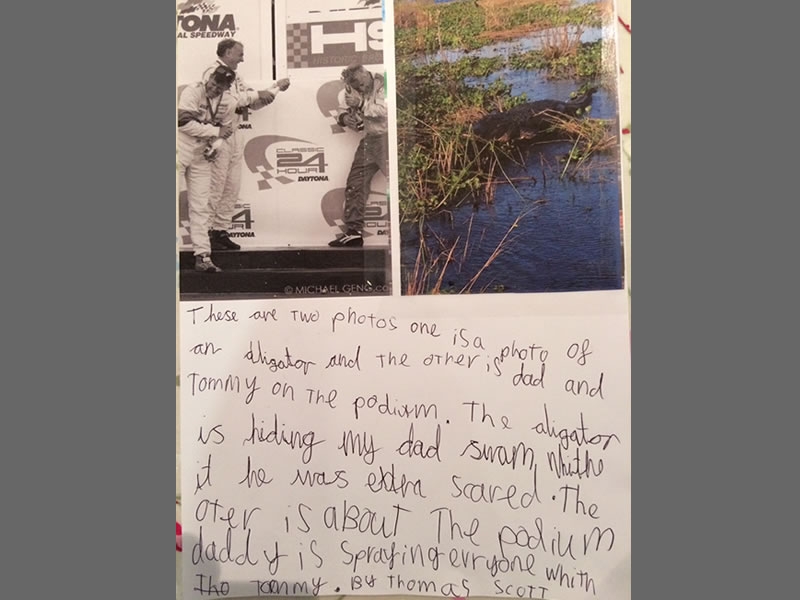 TONA
AL SPEEDWAY
HS
HISTORIC
CLASSIC
24
HOUR
DAYTONA
© MICHAEL GENO.co
These are two photos one is a photo of
an aligator and the other is dad and
Tommy on the podium. The aligator
is hiding my dad swam whithe
it he was extra scared. The
oter is about the podium
daddy is Spraying erryone whith
Tho Tommy. By Thomas Scott